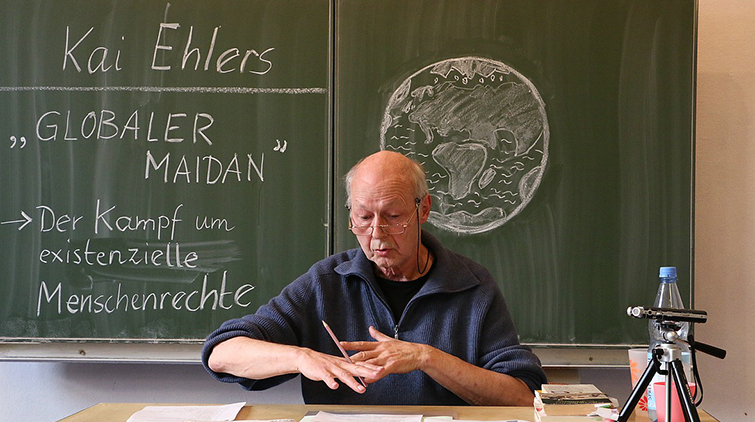 Kai Ehlers
„GLOBALER
MAIDAN"
→ Der Kampf um
existenzielle
Menschenrechte